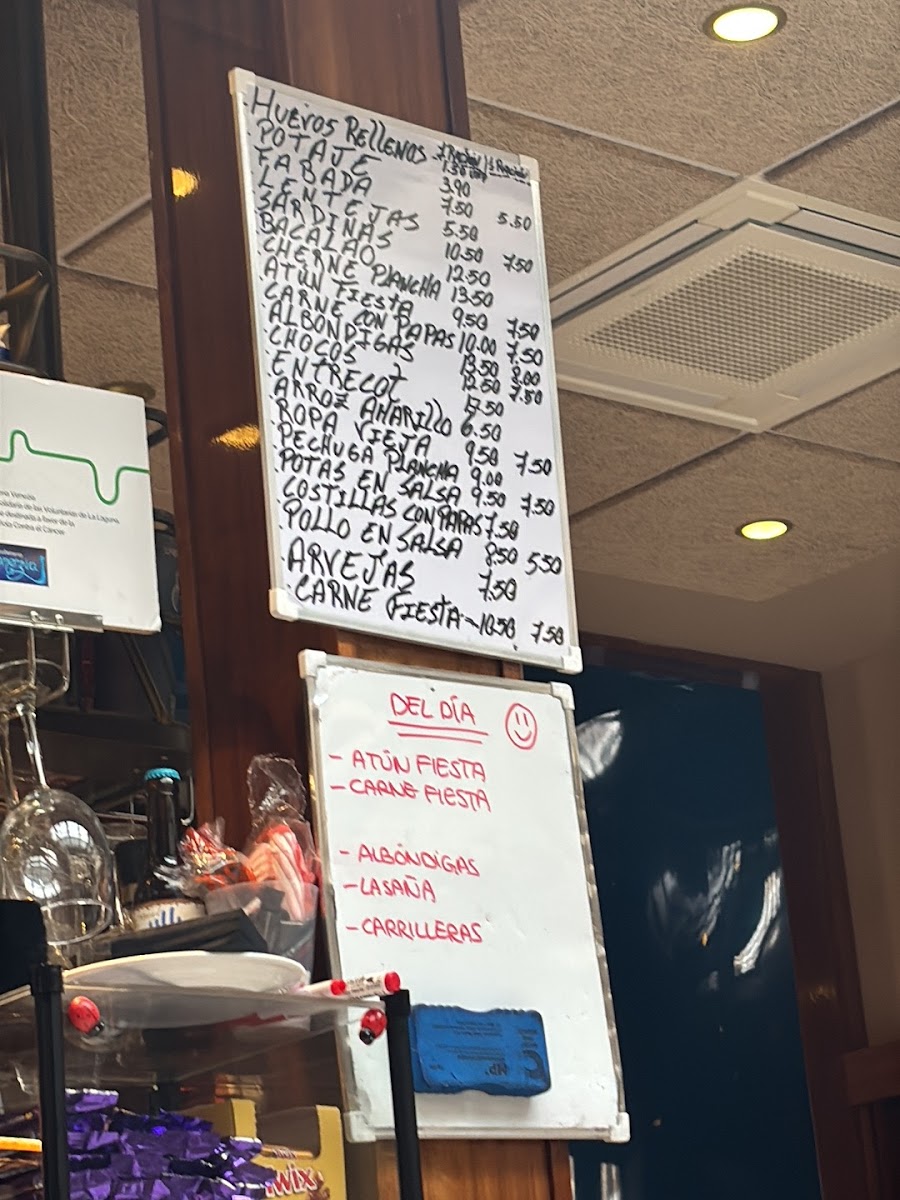 · HUEVOS RELLENOS 1.50
· POTAJE 3.90
· FABADA 7.50 5.50
· LENTEJAS 5.50
· SARDINAS 10.50 7.50
· BACALAO 12.50
· CHERNE PLANCHA 13.50
· ATÚN FIESTA 9.50 7.50
· CARNE CON PAPAS 10.00 7.50
· ALBONDIGAS 13.50 8.00
· CHOCOS 12.50 7.50
· ENTRECOT 17.50
· ARROZ AMARILLO 6.50
· ROPA VIEJA 9.50 7.50
· PECHUGA PLANCHA 9.00
· POTAS EN SALSA 9.50 7.50
· COSTILLAS CON PAPAS 7.50
· POLLO EN SALSA 8.50 5.50
· ARVEJAS 7.50
· CARNE FIESTA 10.50 7.50
DEL DÍA
- ATÚN FIESTA
- CARNE FIESTA
- ALBÓNDIGAS
- LASAÑA
- CARRILLERAS
Venezia
solidaria de las Voluntarias de La Laguna,
destinada a favor de la
Contra el Cáncer